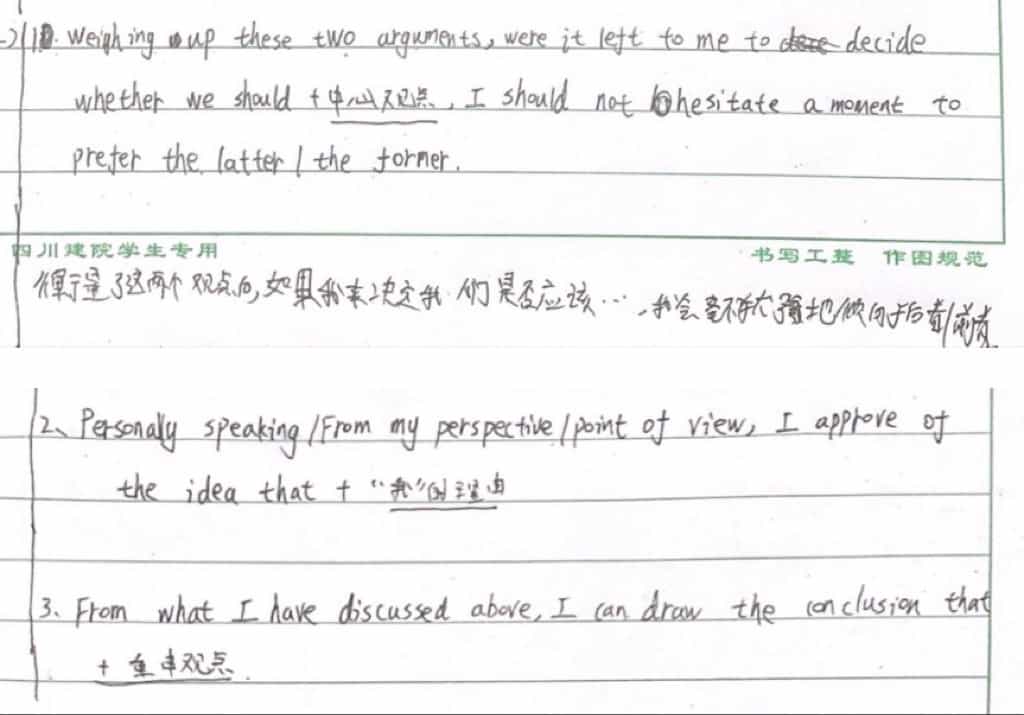 1. Weighing up these two arguments, were it left to me to decide
whether we should + 中心观点, I should not hesitate a moment to
prefer the latter / the former.
四川建院学生专用 书写工整 作图规范
衡量了这两个观点后,如果我来决定我们是否应该…,我会毫不犹豫地倾向于后者/前者
2、Personally speaking/From my perspective/point of view, I approve of
the idea that + “我”的理由
3、From what I have discussed above, I can draw the conclusion that
+ 重申观点.